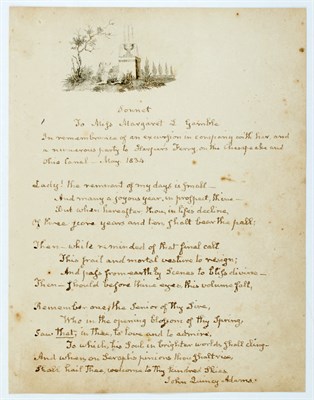 Sonnet
To Miss Margaret L Gombke
In remembrance of an excursion in company with her, and
a numerous party to Harper's Ferry, on the Chesapeake and
Ohio Canal - May. 1834
Lady! the remnant of my days is small—
And many a joyous year, in prospect, thine—
But when hereafter thou, in life's decline,
Of three score years and ten, shalt bear the pall;
Then—while reminded of that final call
This frail and mortal vesture to resign;
And pass from earthly scenes to bliss divine—
Then—Should before thine eyes, this volume fall,
Remember one, the Senior of thy Sire,
Who in the opening blossom of thy Spring,
Saw that, in Thee, to love and to admire,
To which, his Soul in brighter worlds shall cling
And when, on Seraph's pinions thou shalt rise,
Shall hail Thee, welcome to thy kindred Skies
John Quincy Adams.